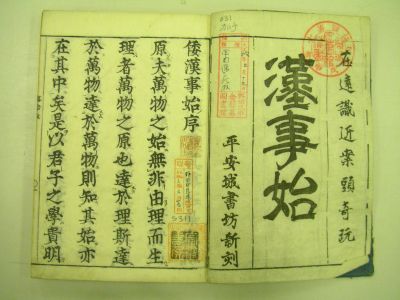 在遠識近案頭奇玩
漢事始
平安城書坊新刻
031
倭漢事始序
原夫萬物之始無非由理而生
理者萬物之原也達於理斯達
於萬物達於萬物則知其始亦
在其中矣是以君子之學貴明